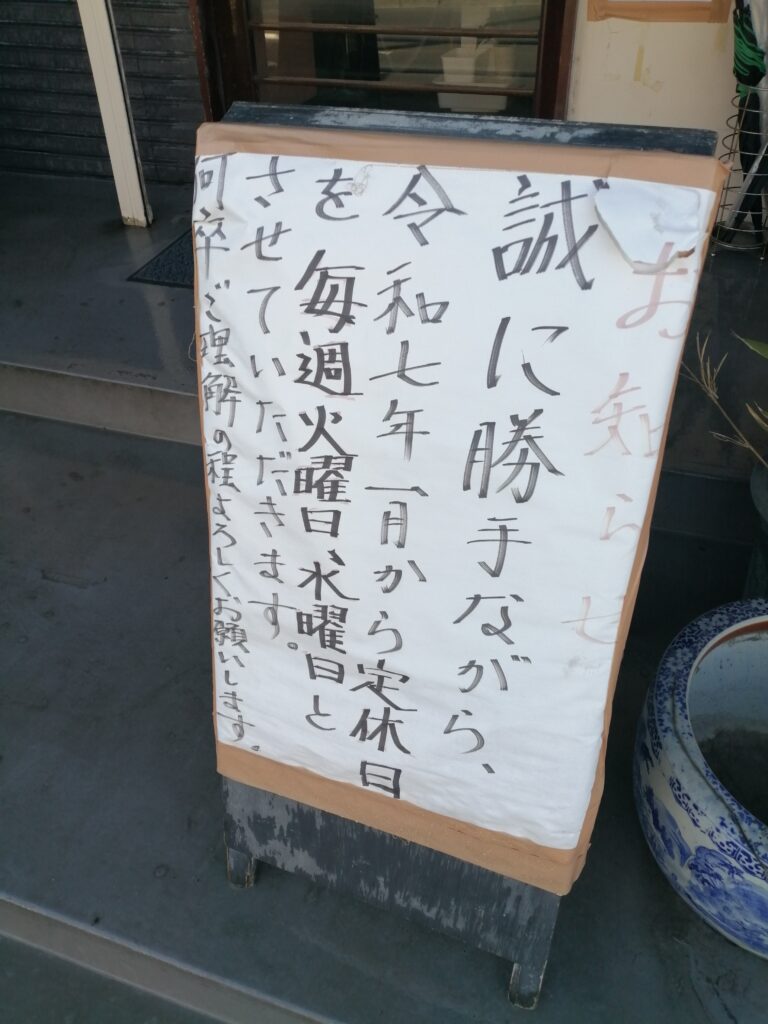 お知らせ
誠に勝手ながら、
令和七年一月から定休日
を毎週火曜日、水曜日と
させていただきます。
何卒ご理解の程よろしくお願いします。